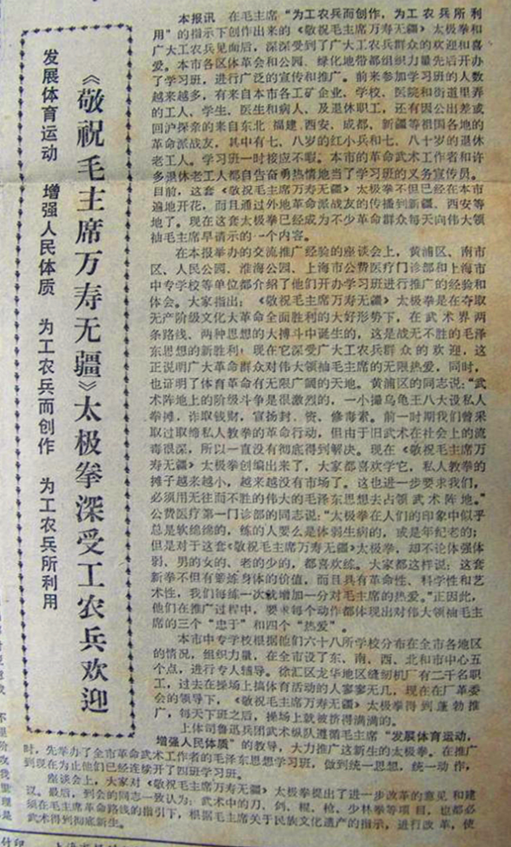 《敬祝毛主席万寿无疆》太极拳深受工农兵欢迎
发展体育运动 增强人民体质 为工农兵而创作 为工农兵所利用
本报讯 在毛主席“为工农兵而创作，为工农兵所利
用”的指示下创作出来的《敬祝毛主席万寿无疆》太极拳和
广大工农兵见面后，深深受到了广大工农兵群众的欢迎和喜
爱。本市各区体革会和公园、绿化地带都组织力量先后开办
了学习班，进行广泛的宣传和推广。前来参加学习班的人数
越来越多，有来自本市各工矿企业、学校、医院和街道里弄
的工人、学生、医生和病人、及退休职工，还有因公出差或
回沪探亲的来自东北、福建、西安、成都、新疆等祖国各地的
革命派战友，其中有七、八岁的红小兵和七、八十岁的退休
老工人。学习班一时接应不暇。本市的革命武术工作者和许
多退休老工人都自告奋勇热情地当了学习班的义务宣传员。
目前，这套《敬祝毛主席万寿无疆》太极拳不但已经在本市
遍地开花，而且通过外地革命派战友的传播到新疆、西安等
地了。现在这套太极拳已经成为不少革命群众每天向伟大领
袖毛主席早请示的一个内容。
在本报举办的交流推广经验的座谈会上，黄浦区、南市
区、人民公园、淮海公园、上海市公费医疗门诊部和上海市
中专学校等单位都介绍了他们开办学习班进行推广的经验和
体会。大家指出：《敬祝毛主席万寿无疆》太极拳是在夺取
无产阶级文化大革命全面胜利的大好形势下，在武术界两
条路线、两种思想的大搏斗中诞生的，这是战无不胜的毛泽
东思想的新胜利；现在它深受广大工农兵群众的欢迎，这
正说明广大革命群众对伟大领袖毛主席的无限热爱，同时，
也证明了体育革命有无限广阔的天地。黄浦区的同志说：“武
术阵地上的阶级斗争是很激烈的，一小撮乌龟王八大设私人
拳摊，诈取钱财，宣扬封、资、修毒素。前一时期我们曾采
取过取缔私人教拳的革命行动，但由于旧武术在社会上的流
毒很深，所以一直没有彻底得到解决。现在《敬祝毛主席万
寿无疆》太极拳创编出来了，大家都喜欢学它，私人教拳的
摊子越来越小，越来越没有市场了。这也进一步要求我们，
必须用无往而不胜的伟大的毛泽东思想去占领武术阵地。”
公费医疗第一门诊部的同志说：“太极拳在人们的印象中似乎
总是软绵绵的，练的人要么是体弱生病的，或是年纪老的；
但是对于这套《敬祝毛主席万寿无疆》太极拳，却不论体强体
弱、男的女的、老的少的，都喜欢练。大家都这样说：这套
新拳不但有锻炼身体的价值，而且具有革命性、科学性和艺
术性，我们每练一次就增加一分对毛主席的热爱。”正因此，
他们在推广过程中，要求每个动作都体现出对伟大领袖毛主
席的三个“忠于”和四个“热爱”。
本市中专学校根据他们六十八所学校分布在全市各地区
的情况，组织力量，在全市设了东、南、西、北和市中心五
个点，进行专人辅导。徐汇区龙华地区缝纫机厂有二千名职
工，过去在操场上搞体育活动的人寥寥无几，现在在厂革委
会的领导下，《敬祝毛主席万寿无疆》太极拳得到蓬勃推
广，每天下班之后，操场上就被挤得满满的。
上体司鲁迅兵团武术纵队遵循毛主席“发展体育运动，
增强人民体质”的教导，大力推广这新生的太极拳。在推广
时，先举办了全市革命武术工作者的毛泽东思想学习班，做到统一思想，统一动作，
到现在为止他们已经连续开了四班学习班。
座谈会上，大家对《敬祝毛主席万寿无疆》太极拳提出了进一步改革的意见和建
议。最后，到会的同志一致认为：武术中的刀、剑、棍、枪、少林拳等项目，也都必
须在毛主席革命路线的指引下，根据毛主席关于民族文化遗产的指示，进行改革，使
武术得到彻底新生。